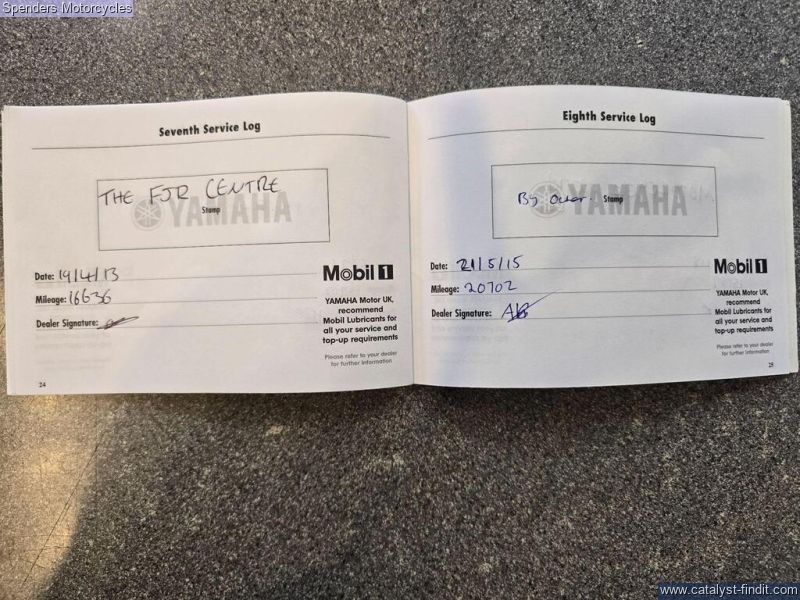 Spenders Motorcycles
Seventh Service Log
THE FJR CENTRE
Stamp
YAMAHA
Date: 19/4/13
Mileage: 16636
Dealer Signature:
Mobil 1
YAMAHA Motor UK,
recommend
Mobil Lubricants for
all your service and
top-up requirements
Please refer to your dealer
for further information
24
Eighth Service Log
By Owner.
Stamp
YAMAHA
Date: 21/5/15
Mileage: 20702
Dealer Signature:
Mobil 1
YAMAHA Motor UK,
recommend
Mobil Lubricants for
all your service and
top-up requirements
Please refer to your dealer
for further information
25
www.catalyst-findit.com